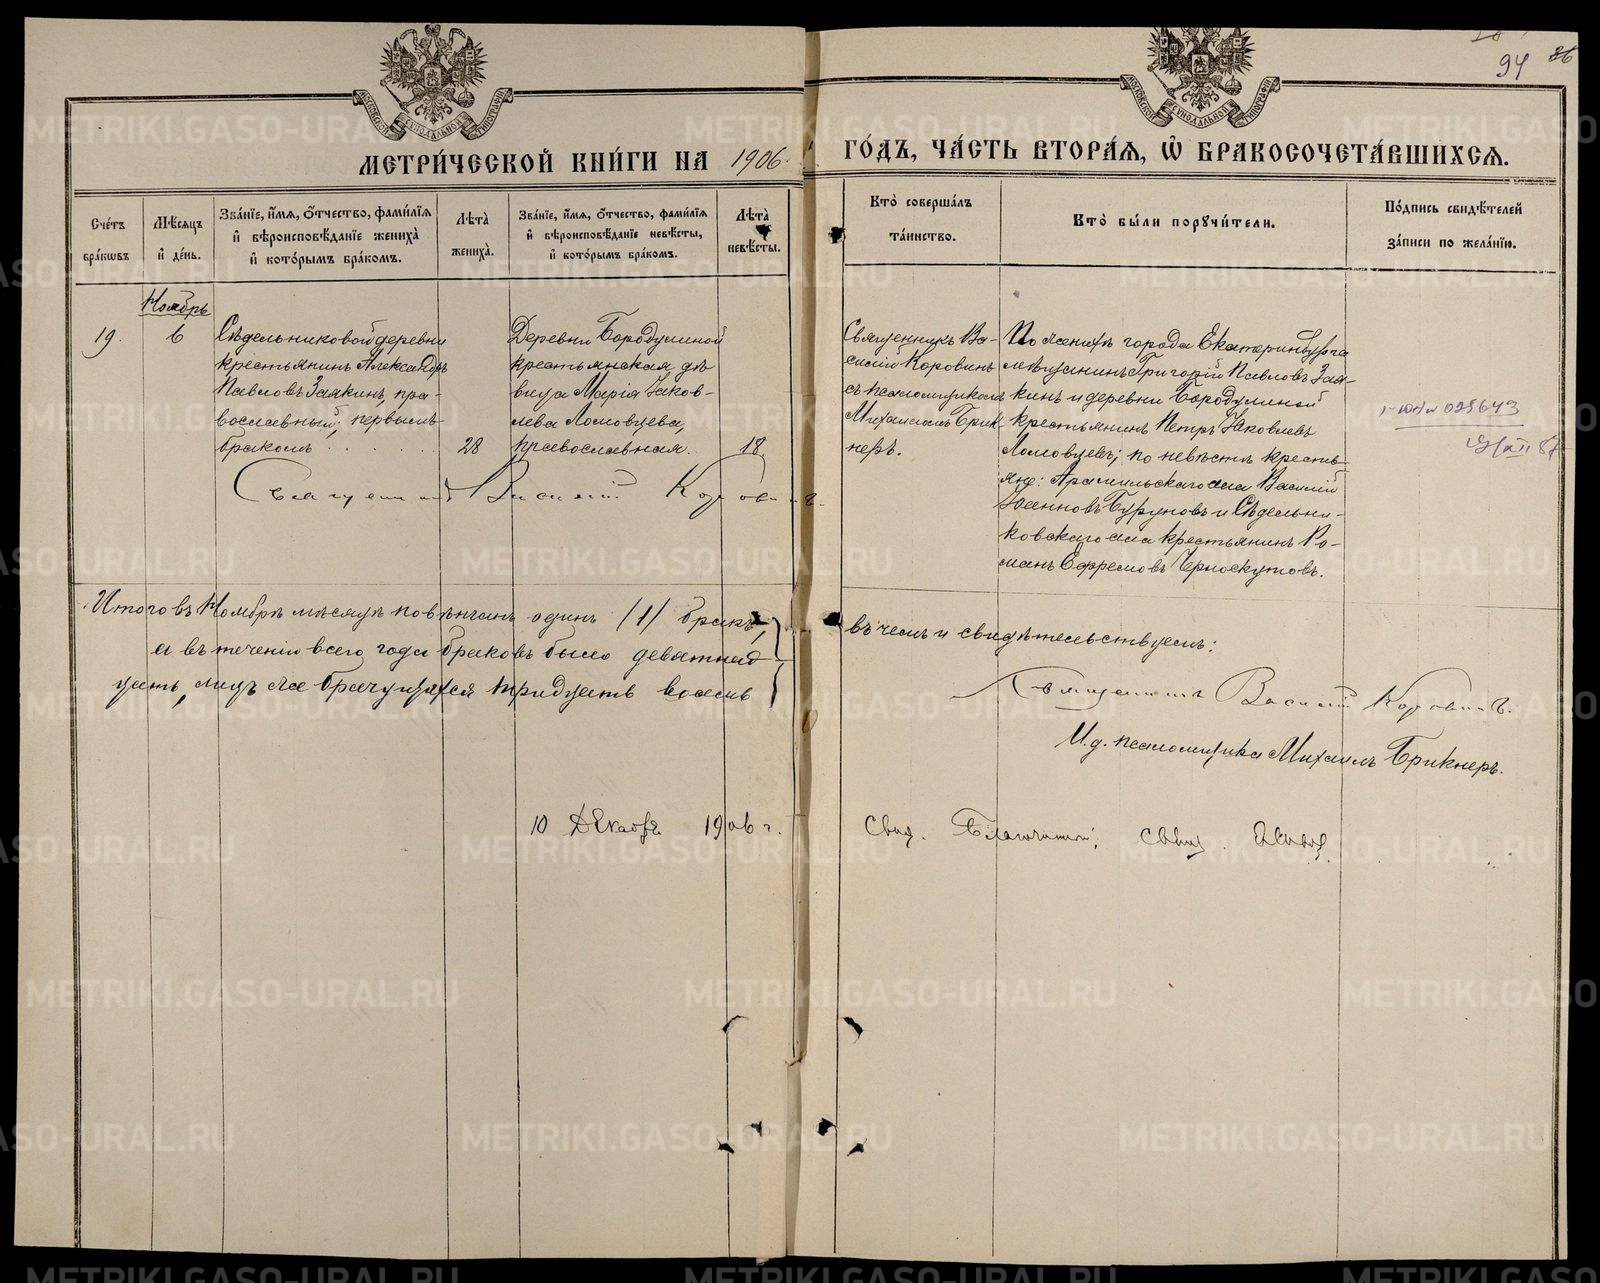 94 86
МЕТРИ́ЧЕСКОЙ КНИ́ГИ НА 1906 ГО́ДЪ, ЧА́СТЬ ВТОРА́Я, Ѡ БРАКОСОЧЕТА́ВШИХСЯ.
Сче́тъ бра́кѡвъ
Мѣ́сяцъ и҆ де́нь.
Зва́нїе, и҆́мя, ѻ҆́тчество, фами́лїя и҆ вѣроисповѣ́данїе жениха̀ и҆ кото́рымъ бра́комъ.
Лѣта̀ жениха̀.
Зва́нїе, и҆́мя, ѻ҆́тчество, фами́лїя и҆ вѣроисповѣ́данїе невѣ́сты, и҆ кото́рымъ бра́комъ.
Лѣта̀ невѣ́сты.
Кто̀ соверша́лъ та́инство.
Кто̀ бы́ли порꙋчи́тели.
По́дпись свидѣ́телей за́писи по жела́нїю.
Ноябрь
19.
6
Сѣдельниковой деревни
крестьянинъ Александръ
Павловъ Заякинъ, пра-
вославный, первымъ
бракомъ
28
Деревни Бородулиной
крестьянская дѣ
вица Марія Іаков-
лева Ломовцева,
православная.
18
Священникъ Ва-
силій Коровинъ
съ псаломщикомъ
Михаиломъ Брик
неръ.
По женихѣ города Екатеринбурга
мѣщанинъ Григорій Павловъ Зая-
кинъ и деревни Бородулиной
крестьянинъ Петръ Іаковлевъ
Ломовцевъ; по невѣстѣ кресть-
яне: Арамильскаго села Василій
Іоанновъ Буруновъ и Сѣдельни-
ковскаго села крестьянинъ Ро-
манъ Ефремовъ Черноскутовъ.
025643
Священникъ Василій Коровинъ.
Итого въ Ноябрѣ мѣсяцѣ повѣнчанъ одинъ /1/ бракъ,
а въ теченіи всего года браковъ было девятнад-
цать, лицъ же брачущихся тридцать восемь
въ чемъ и свидѣтельствуемъ:
Священникъ Василій Коровинъ.
И. д. псаломщика Михаилъ Брикнеръ.
10 Декабря 1906 г.
Свид. Благочинный, свящ.
METRIKI.GASO-URAL.RU